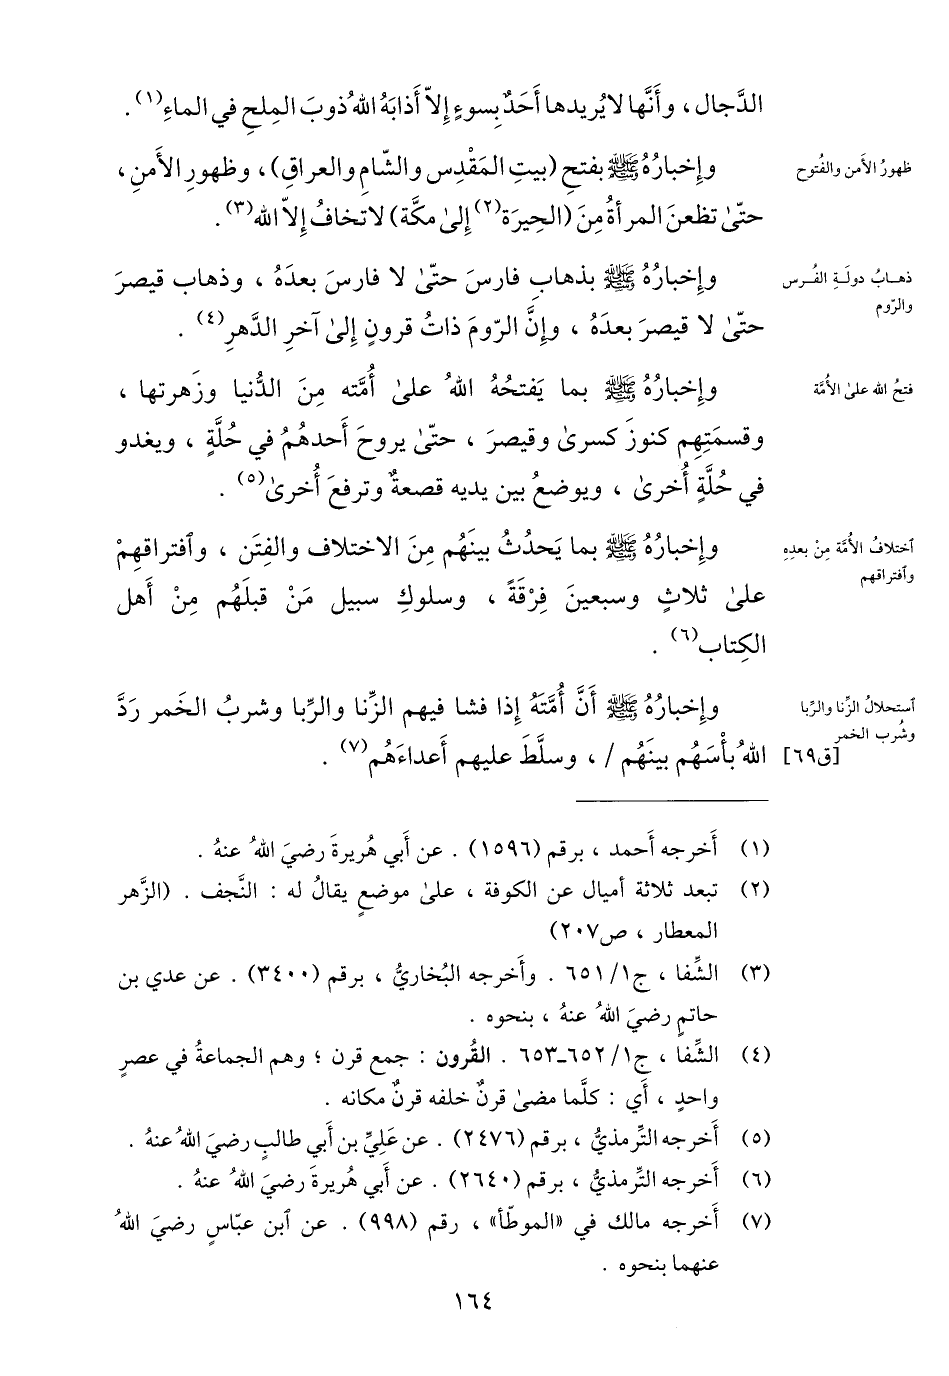 الدَّجال ، وأَنَّها لا يُريدها أَحَدٌ بِسوءٍ إِلاّ أَذابَهُ اللهُ ذوبَ المِلحِ في الماءِ(١) .
ظهورُ الأَمن والفُتوح
وإِخبارُهُ ﷺ بفتحِ (بيتِ المَقْدِسِ والشّامِ والعراقِ) ، وظهورِ الأَمنِ ،
حتّىٰ تظعنَ المرأةُ مِنَ (الحِيرَة(٢) إِلىٰ مكَّة) لا تخافُ إِلاّ الله(٣) .
ذهـابُ دولـةِ الفُـرس
والرّوم
وإِخبارُهُ ﷺ بذهابِ فارسَ حتّىٰ لا فارسَ بعدَهُ ، وذهاب قيصرَ
حتّىٰ لا قيصرَ بعدَهُ ، وإِنَّ الرّومَ ذاتُ قرونٍ إِلىٰ آخرِ الدَّهرِ(٤) .
فتحُ الله علىٰ الأُمَّة
وإِخبارُهُ ﷺ بما يَفتحُهُ اللهُ علىٰ أُمَّته مِنَ الدُّنيا وزَهرتها ،
وقسمَتِهِم كنوزَ كسرىٰ وقيصرَ ، حتّىٰ يروحَ أَحدهُمُ في حُلَّةٍ ، ويغدو
في حُلَّةٍ أُخرىٰ ، ويوضعُ بين يديه قصعةٌ وترفعَ أُخرىٰ(٥) .
ٱختلافُ الأُمَّة مِنْ بعدِهِ
وٱفتراقهم
وإِخبارُهُ ﷺ بما يَحدُثُ بينَهُم مِنَ الاختلاف والفِتَن ، وٱفتراقِهِمْ
علىٰ ثلاثٍ وسبعينَ فِرْقَةً ، وسلوكِ سبيل مَنْ قبلَهُم مِنْ أَهل
الكِتاب(٦) .
ٱستحلالُ الزِّنا والرِّبا
وشُرب الخمر
وإِخبارُهُ ﷺ أَنَّ أُمَّتَهُ إِذا فشا فيهم الزِّنا والرِّبا وشربُ الخَمر رَدَّ
[ق٦٩]
اللهُ بأْسَهُم بينَهُم / ، وسلَّطَ عليهم أَعداءَهُم(٧) .
(١) أَخرجه أَحمد ، برقم (١٥٩٦) . عن أَبي هُريرةَ رضيَ اللهُ عنهُ .
(٢) تبعد ثلاثة أميال عن الكوفة ، علىٰ موضعٍ يقالُ له : النَّجف . (الرَّوض
المعطار ، ص٢٠٧)
(٣) الشِّفا ، ج١/ ٦٥١ . وأَخرجه البُخاريُّ ، برقم (٣٤٠٠) . عن عدي بن
حاتمٍ رضيَ اللهُ عنهُ ، بنحوه .
(٤) الشِّفا ، ج١/ ٦٥٢ـ٦٥٣ . القُرون : جمع قرن ؛ وهم الجماعةُ في عصرٍ
واحدٍ ، أَي : كلَّما مضىٰ قرنٌ خلفه قرنٌ مكانه .
(٥) أَخرجه التِّرمذيُّ ، برقم (٢٤٧٦) . عن عَلِيِّ بن أَبي طالبٍ رضيَ اللهُ عنهُ .
(٦) أَخرجه التِّرمذيُّ ، برقم (٢٦٤٠) . عن أَبي هُريرةَ رضيَ اللهُ عنهُ .
(٧) أَخرجه مالك في «الموطّأ» ، رقم (٩٩٨) . عن ٱبن عبّاسٍ رضيَ اللهُ
عنهما بنحوه .
١٦٤